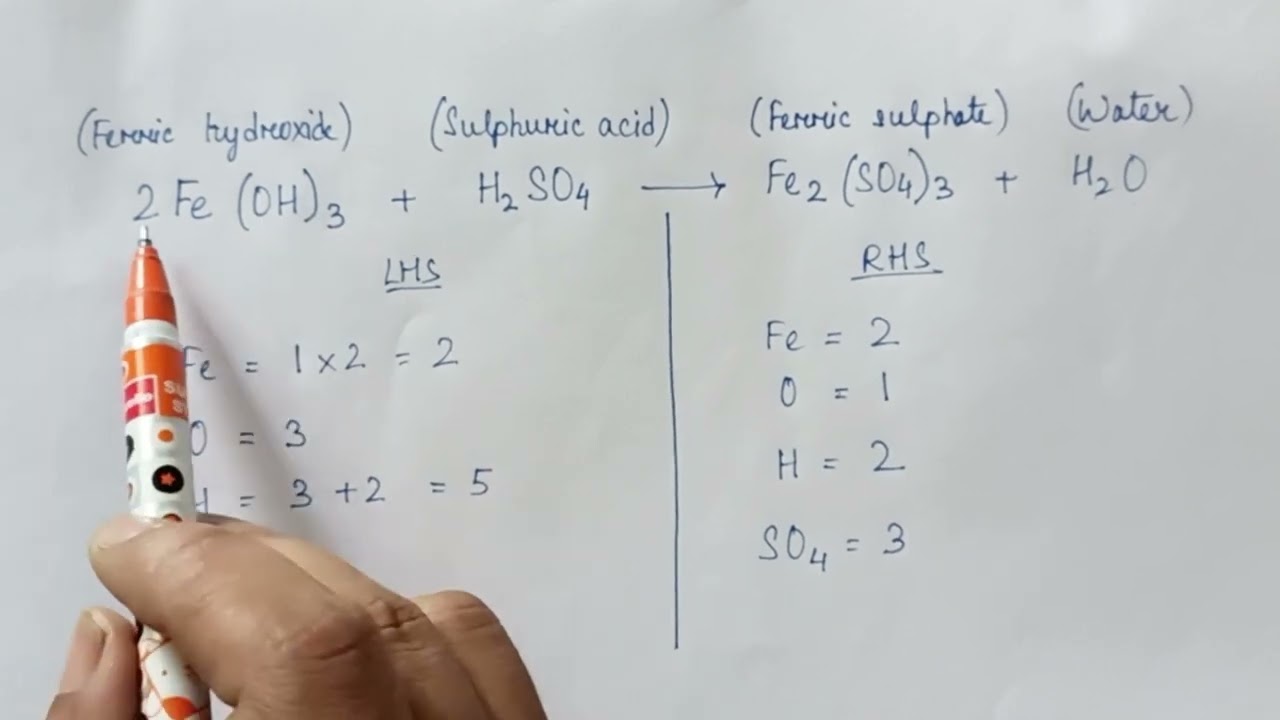 (Ferric hydroxide) (Sulphuric acid) (Ferric sulphate) (Water)
2 Fe (OH)3 + H2 SO4 ⟶ Fe2 (SO4)3 + H2O
LHS
RHS
Fe = 1 × 2 = 2
O = 3
H = 3 + 2 = 5
Fe = 2
O = 1
H = 2
SO4 = 3